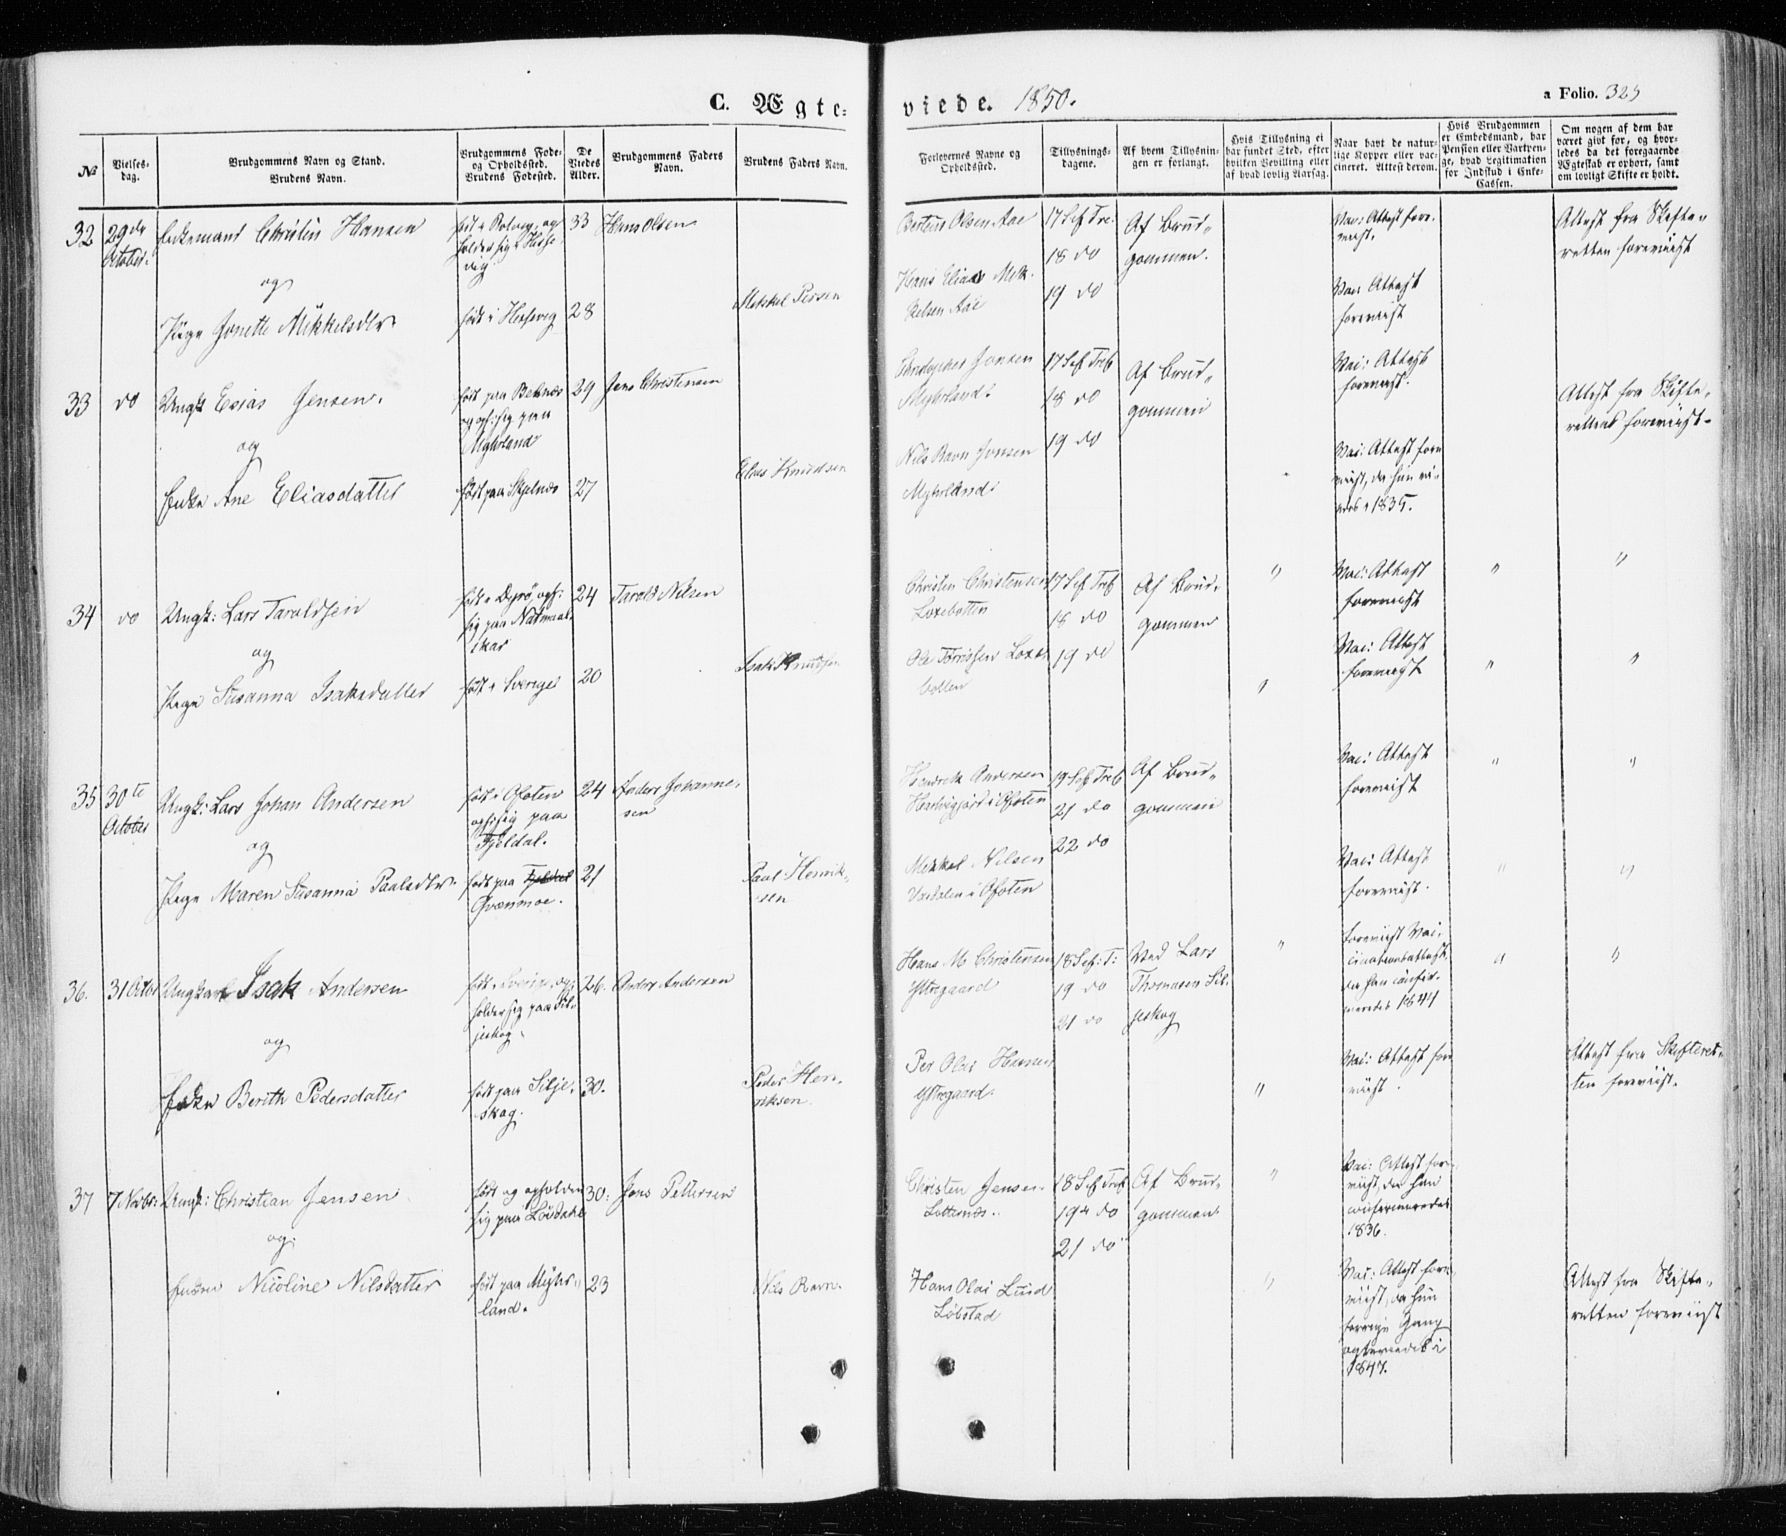 C. Ægte-
viede. 1850.
a Folio. 325
No
Vielses-
dag.
Brudgommens Navn og Stand.
Brudens Navn.
Brudgommens Føde-
og Opholdssted.
Brudens Fødested.
De
Viedes
Alder.
Brudgommens Faders
Navn.
Brudens Faders Navn.
Forlovernes Navne og
Opholdssted.
Tillysnings-
dagene.
Af hvem Tillysnin-
gen er forlangt.
Hvis Tillysning ei
har fundet Sted, efter
hvilken Bevilling eller
af hvad lovlig Aarsag.
Naar havt de natur-
lige Kopper eller vac-
cineret. Attest derom.
Hvis Brudgommen
er Embedsmand, har
Pension eller Vartpen-
ge, hvad Legitimation
for Indskud i Enke-
Cassen.
Om nogen af dem har
været gift før, og hvor-
ledes da det foregaaende
Ægteskab er ophørt, samt
om lovligt Skifte er holdt.
32
29de
October.
Enkemand Christen Hansen
og
Pige Jonette Mikkelsdtr
født i
holder sig i
født i
33
28
Hans Olsen
Mikkel Persen
Olsen Aae
Hans Elias Mik-
kelsen Aae
17 Sep Tre:
18 do
19 do
Af Brud-
gommen.
Vac: Attest fore-
viist.
Vac: Attest
foreviist
Attest fra Skifte-
retten foreviist
33
do
Ungk: Esias Jensen.
og
Enke Ane Eliasdatter
født paa
og oph: sig paa
Myhrland
født paa Skjelnæs
29
27
Jens Christensen
Elias Knudsen
Jensen
Myhrland.
Nils Ravn Jensen
Myhrland.
17 Sep Tref
18 do
19 do
Af Brud-
gommen
Vac: Attest
foreviist.
Vac: Attest fore-
viist, da hun
1835.
Attest fra Skifte-
retten foreviist.
34
do
Ungk: Lars Taraldsen
og
Pige Susanna Isaksdatter
født i Dyrø, oph:
sig paa
skar
født i Sverige
24
20
Tarald Nilsen
Isak Knudsen
Christen Christensen
Loxebotten
Ole Tørrissen Loxe-
botten
17 Sep Tref
18 do
19 do
Af Brud-
gommen
Vac: Attest
foreviist
Vac: Attest
foreviist
35
30te
October
Ungk: Lars Johan Andersen
og
Pige Maren Susanna Paalsdtr.
født i Ofoten
oph: sig paa
Fjeldal.
født paa Fjeldal
Qvænmoe.
24
21
Anders Johanne-
sen
Paul Henrik-
sen
Hendrik Andersen
Herlvigfjord i Ofoten
Mikkel Nilsen
Vasdalen i Ofoten
19 Sep Tref
21 do
22 do
Af Brud-
gommen
Vac: Attest
foreviist
Vac: Attest
foreviist.
36.
31 Octor
Ungkarl Isak Andersen
og
Enke Berith Pedersdatter
født i Sverige, op-
holder sig paa Sil-
jeskog.
født paa Silje-
skog.
26.
30.
Anders Andersen
Peder Hen-
riksen.
Hans M. Christensen
Yttregaard
Per Olai Hansen
Yttregaard.
18 Sep: T:
19 do
21 do
Ved Lars
Thomasen Sil-
jeskog
foreviist Vac-
cinationsattest,
da han confir-
meredes 1844
Vac: Attest fore-
viist.
Attest fra Skifteret-
ten foreviist.
37
7 Novbr:
Ungk: Christian Jensen
og
Enken Nicoline Nilsdatter
født og opholder
sig paa Løvdahl
født paa Myhr-
land.
30:
23
Jens Pettersen
Nils Ravn.
Christen Jensen
Hans Olai Lund
Løbstad
18 Sep Tref
19 do
21 do
Af Brud-
gommen.
Vac: Attest fore-
viist, da han
confirmeredes
1836.
Vac: Attest fore-
viist, da hun
forrige Gang
ægteviedes i
1847.
Attest fra Skifte-
retten foreviist